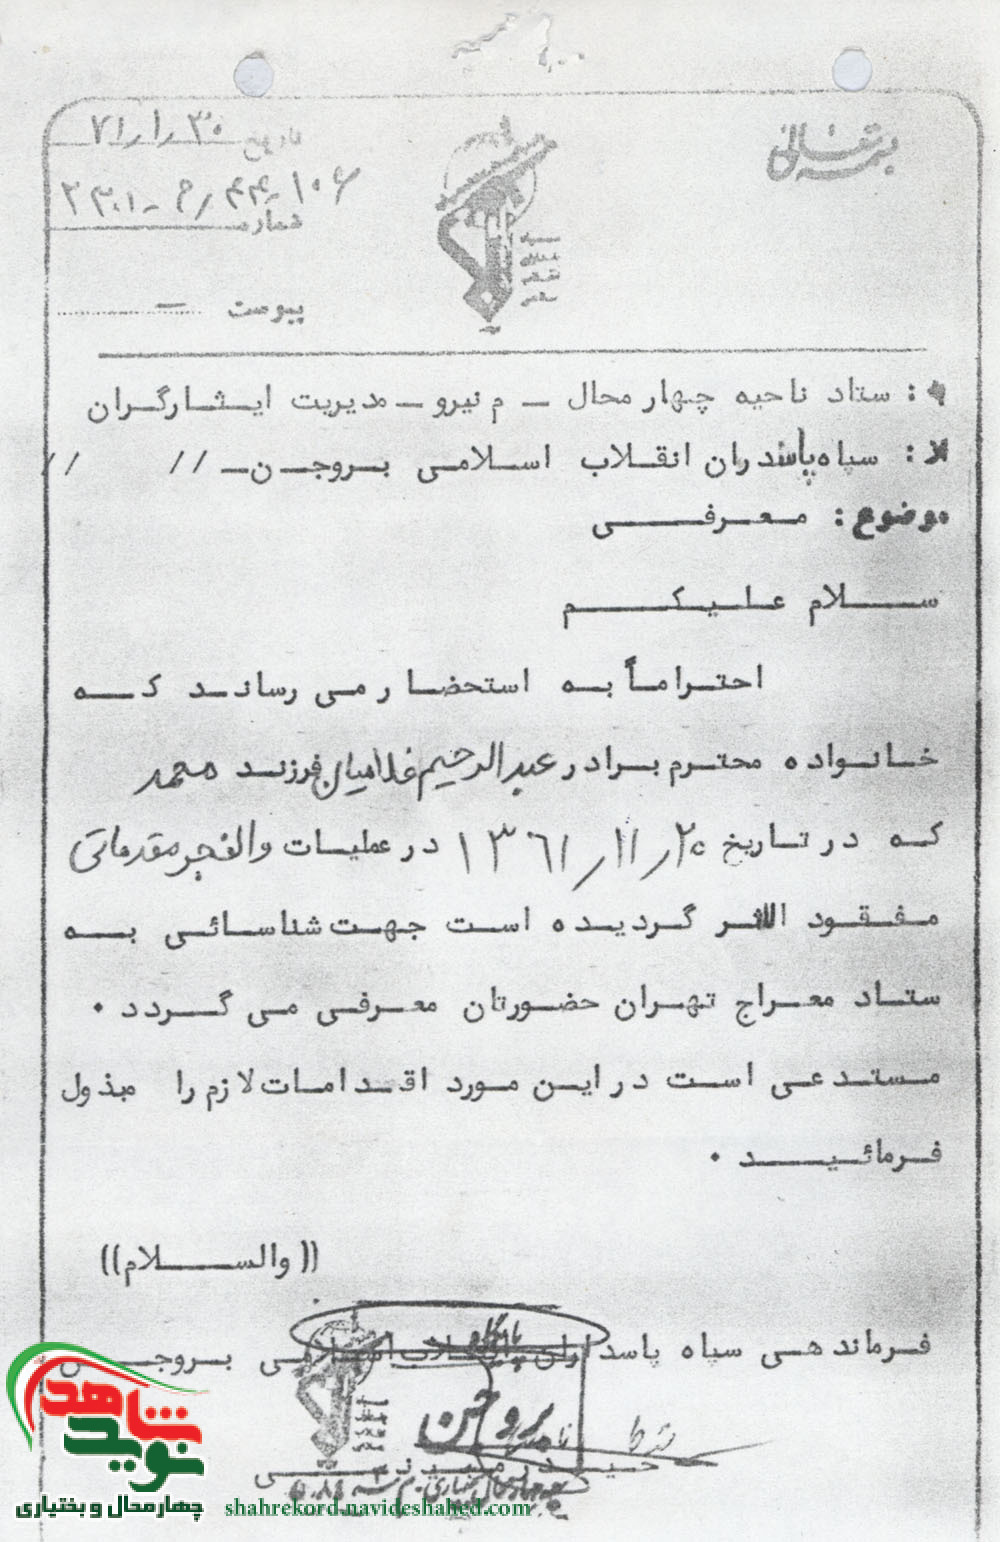 بسمه تعالی
تاریخ ۷۱/۱/۳۰
شماره ۱۰۶-۴۴/م-۲۳۰۱
پیوست —
به: ستاد ناحیه چهارمحال – م نیرو – مدیریت ایثارگران
از: سپاه پاسدران انقلاب اسلامی بروجن – // //
موضوع: معرفی
سلام علیکم
احتراماً به استحضار می رساند که
خانواده محترم برادر عبدالرحیم غلامیان فرزند محمد
که در تاریخ ۱۳۶۱/۱۱/۲۰ در عملیات والفجر مقدماتی
مفقود الاثر گردیده است جهت شناسائی به
ستاد معراج تهران حضورتان معرفی می گردد .
مستدعی است در این مورد اقدامات لازم را مبذول
فرمائید .
((والسلام))
فرماندهی سپاه پاسداران انقلاب اسلامی بروجن
پایگاه
بروجن
نوید شاهد
چهارمحال و بختیاری
shahrekord.navideshahed.com